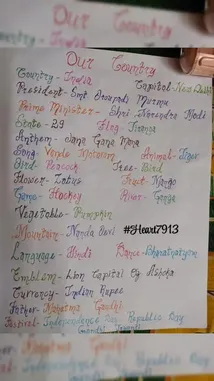 Our Country
Country - India Capital - New Delhi
President - Smt Droupadi Murmu
Prime Minister - Shri Narendra Modi
State - 29 Flag - Tiranga
Anthem - Jana Gana Mana
Song - Vande Mataram Animal - Tiger
Bird - Peacock Tree - Bird
Flower - Lotus Fruit - Mango
Game - Hockey River - Ganga
Vegetable - Pumpkin
Mountain - Nanda Devi #Heart7913
Language - Hindi Dance - Bharatnatyam
Emblem - Lion Capital Of Ashoka
Currency - Indian Rupee
Father - Mahatma Gandhi
Festival - Independence Day Republic Day
Gandhi Jayanti